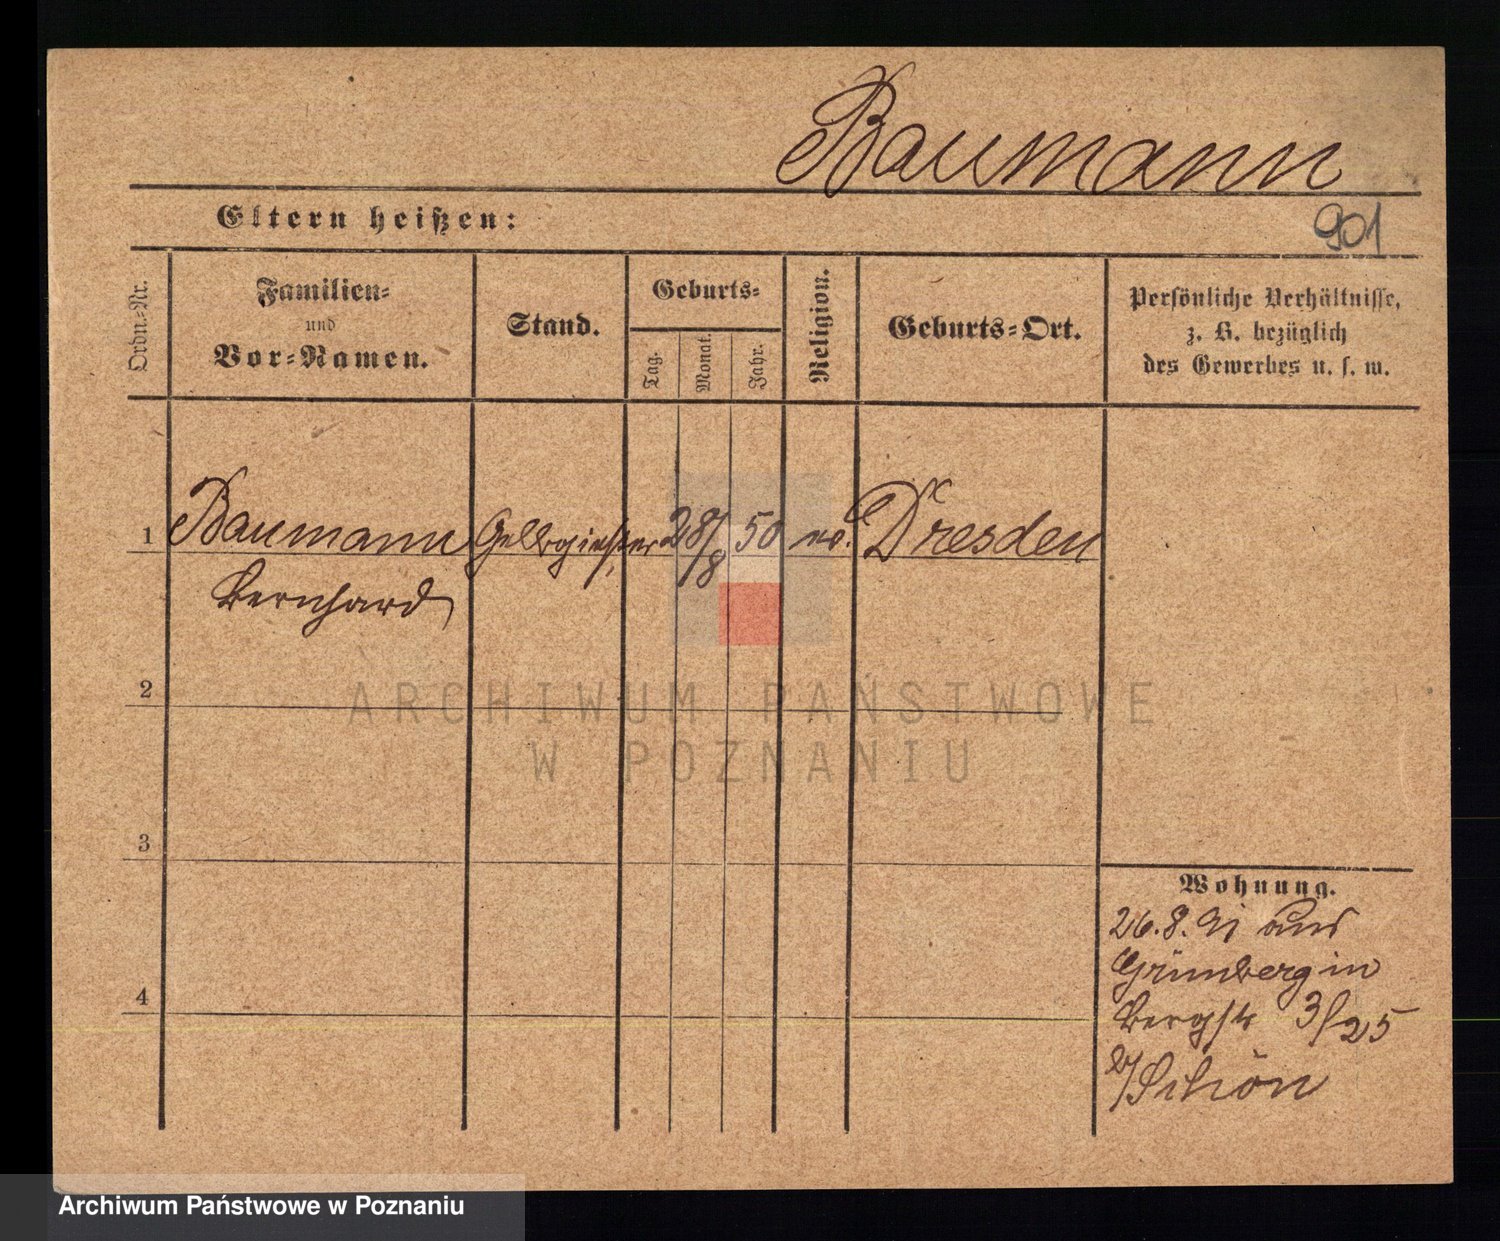 Baumann
901
Eltern heißen:
Ordn.-Nr.
Familien-
und
Vor-Namen.
Stand.
Geburts-
Tag.
Monat.
Jahr.
Religion.
Geburts-Ort.
Persönliche Verhältnisse,
z. B. bezüglich
des Gewerbes u. s. w.
1 Baumann Gelbgießer 28/8 50 ev. Dresden
Bernhard
2
3
4
Wohnung.
26.8.91 aus
Grünberg in
Bergstr 3/25
b/Schön
ARCHIWUM PAŃSTWOWE
W POZNANIU
Archiwum Państwowe w Poznaniu